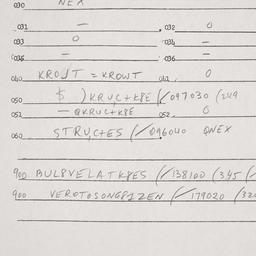 030 NEX
031 — 032 0
033 0 034 —
035 — 036 —
040 KROWT = KROWT 041 0
050 $ ) KRUC+K8E (/ 097030 (249
051 — @KRUC+K8E 052 0
060 STRUC+ES (/ 096040 QNEX
900 BULPVELATK8ES (/ 138100 (345 (/
900 VEROTOSONGPIZEN (/ 179020 (32